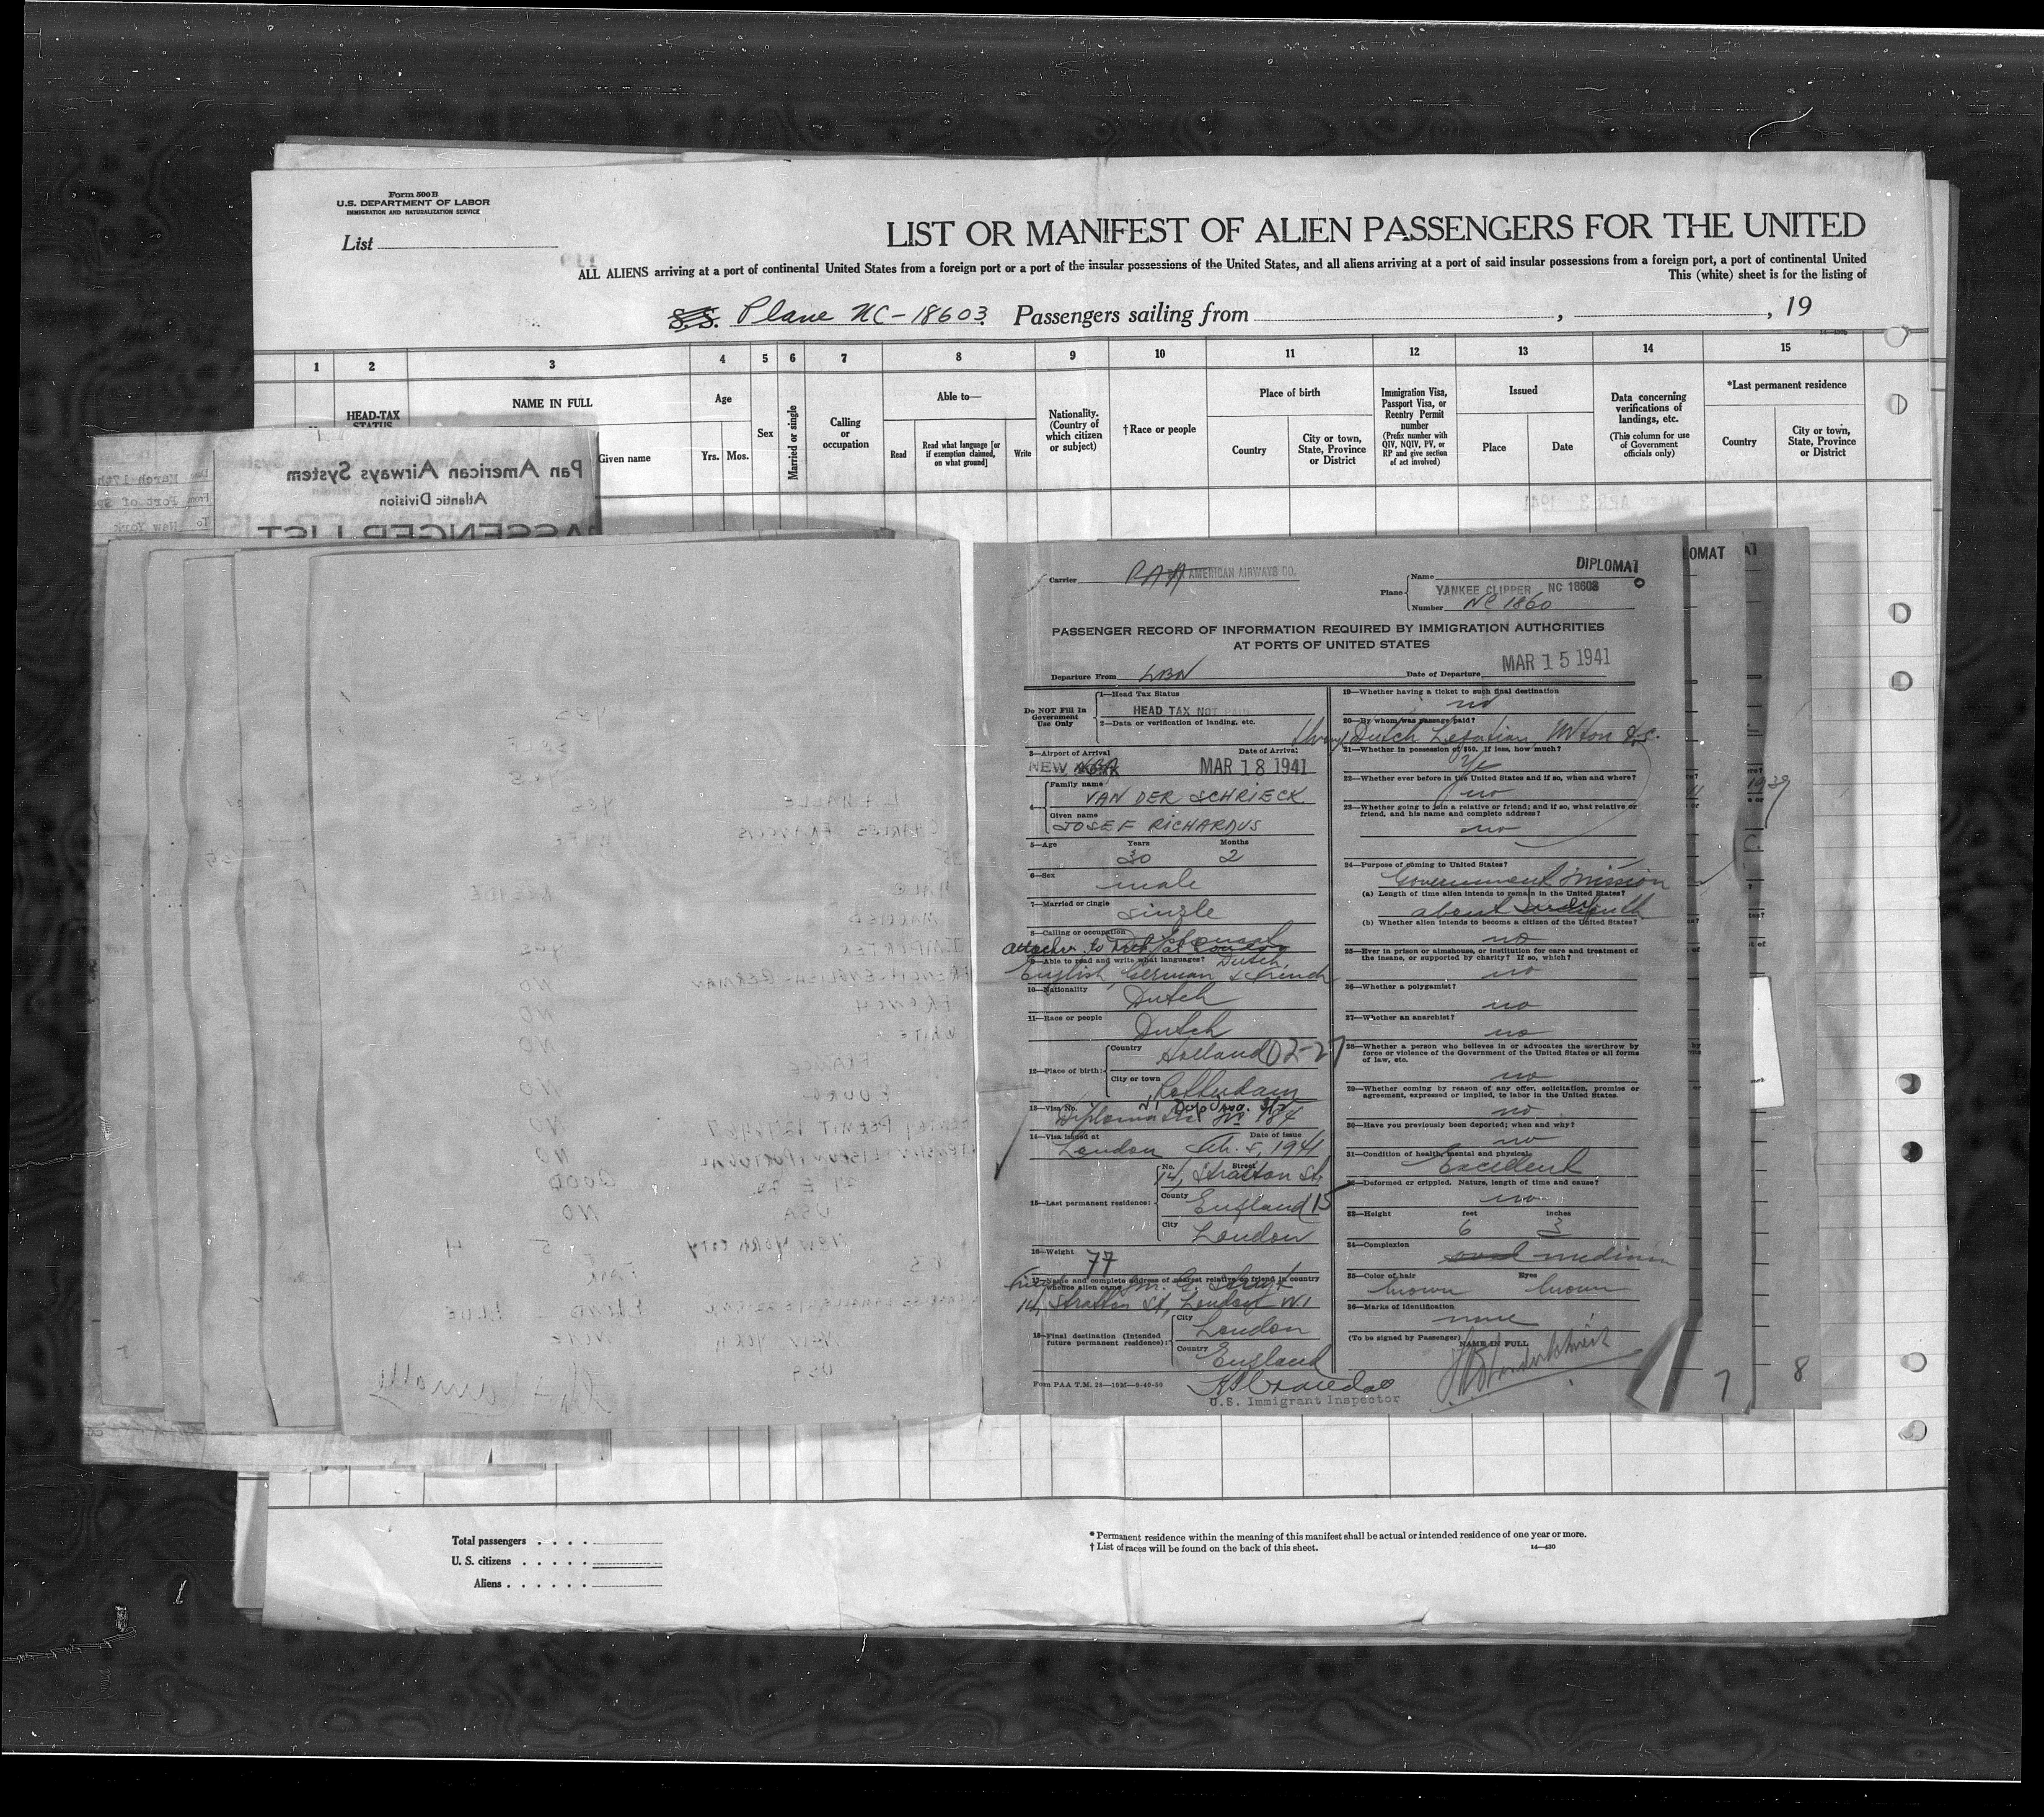 Form 500 B
U.S. DEPARTMENT OF LABOR
IMMIGRATION AND NATURALIZATION SERVICE
List
LIST OR MANIFEST OF ALIEN PASSENGERS FOR THE UNITED
ALL ALIENS arriving at a port of continental United States from a foreign port or a port of the insular possessions of the United States, and all aliens arriving at a port of said insular possessions from a foreign port, a port of continental United
This (white) sheet is for the listing of
S.S. Plane NC-18603 Passengers sailing from , , 19
1 2 3 4 5 6 7 8 9 10 11 12 13 14 15
HEAD-TAX STATUS
NAME IN FULL
Given name
Age
Yrs. Mos.
Sex
Married or single
Calling or occupation
Able to—
Read
Read what language [or if exemption claimed, on what ground]
Write
Nationality. (Country of which citizen or subject)
† Race or people
Place of birth
Country
City or town, State, Province or District
Immigration Visa, Passport Visa, or Reentry Permit number
(Prefix number with QIV, NQIV, PV, or RP and give section of act involved)
Issued
Place
Date
Data concerning verifications of landings, etc.
(This column for use of Government officials only)
*Last permanent residence
Country
City or town, State, Province or District
Pan American Airways System
Atlantic Division
PASSENGER LIST
March 17th
From Port of
To New York
DIPLOMAT
OMAT
Carrier PAA AMERICAN AIRWAYS CO.
Plane Name YANKEE CLIPPER NC 18603
Number NC 1860
PASSENGER RECORD OF INFORMATION REQUIRED BY IMMIGRATION AUTHORITIES
AT PORTS OF UNITED STATES
Departure From LBN Date of Departure MAR 15 1941
Do NOT Fill In Government Use Only
1—Head Tax Status
HEAD TAX NOT PAID
2—Data or verification of landing, etc.
3—Airport of Arrival Date of Arrival
NEW YORK MAR 18 1941
4— Family name
VAN DER SCHRIECK
Given name
JOSEF RICHARDUS
5—Age Years 30 Months 2
6—Sex male
7—Married or single single
8—Calling or occupation Diplomat
9—Able to read and write what languages? Dutch
English, German & French
10—Nationality Dutch
11—Race or people Dutch
12—Place of birth: Country Holland 02-27
City or town Rotterdam
13—Visa No.
Diplomatic No 184
14—Visa issued at Date of Issue
London Feb. 5, 1941
15—Last permanent residence: No. Street
14, Stratton St.
County England 15
City London
16—Weight 77
17—Name and complete address of nearest relative or friend in country whence alien came
14, Stratton St, London W1
18—Final destination (Intended future permanent residence): City London
Country England
Form PAA T.M. 28—10M—9-40-50
U.S. Immigrant Inspector
19—Whether having a ticket to such final destination
no
20—By whom was passage paid?
Dutch Legation, Wton D.C.
21—Whether in possession of $50. If less, how much?
Yes
22—Whether ever before in the United States and if so, when and where?
no
23—Whether going to join a relative or friend; and if so, what relative or friend, and his name and complete address?
no
24—Purpose of coming to United States?
Government Mission
(a) Length of time alien intends to remain in the United States?
about
(b) Whether alien intends to become a citizen of the United States?
no
25—Ever in prison or almshouse, or institution for care and treatment of the insane, or supported by charity? If so, which?
no
26—Whether a polygamist?
no
27—Whether an anarchist?
no
28—Whether a person who believes in or advocates the overthrow by force or violence of the Government of the United States or all forms of law, etc.
no
29—Whether coming by reason of any offer, solicitation, promise or agreement, expressed or implied, to labor in the United States.
no
30—Have you previously been deported; when and why?
no
31—Condition of health, mental and physical.
Excellent
32—Deformed or crippled. Nature, length of time and cause?
no
33—Height feet 6 inches 3
34—Complexion medium
35—Color of hair brown Eyes brown
36—Marks of identification
none
(To be signed by Passenger) NAME IN FULL
7
8
Total passengers
U. S. citizens
Aliens
* Permanent residence within the meaning of this manifest shall be actual or intended residence of one year or more.
† List of races will be found on the back of this sheet.
14—430